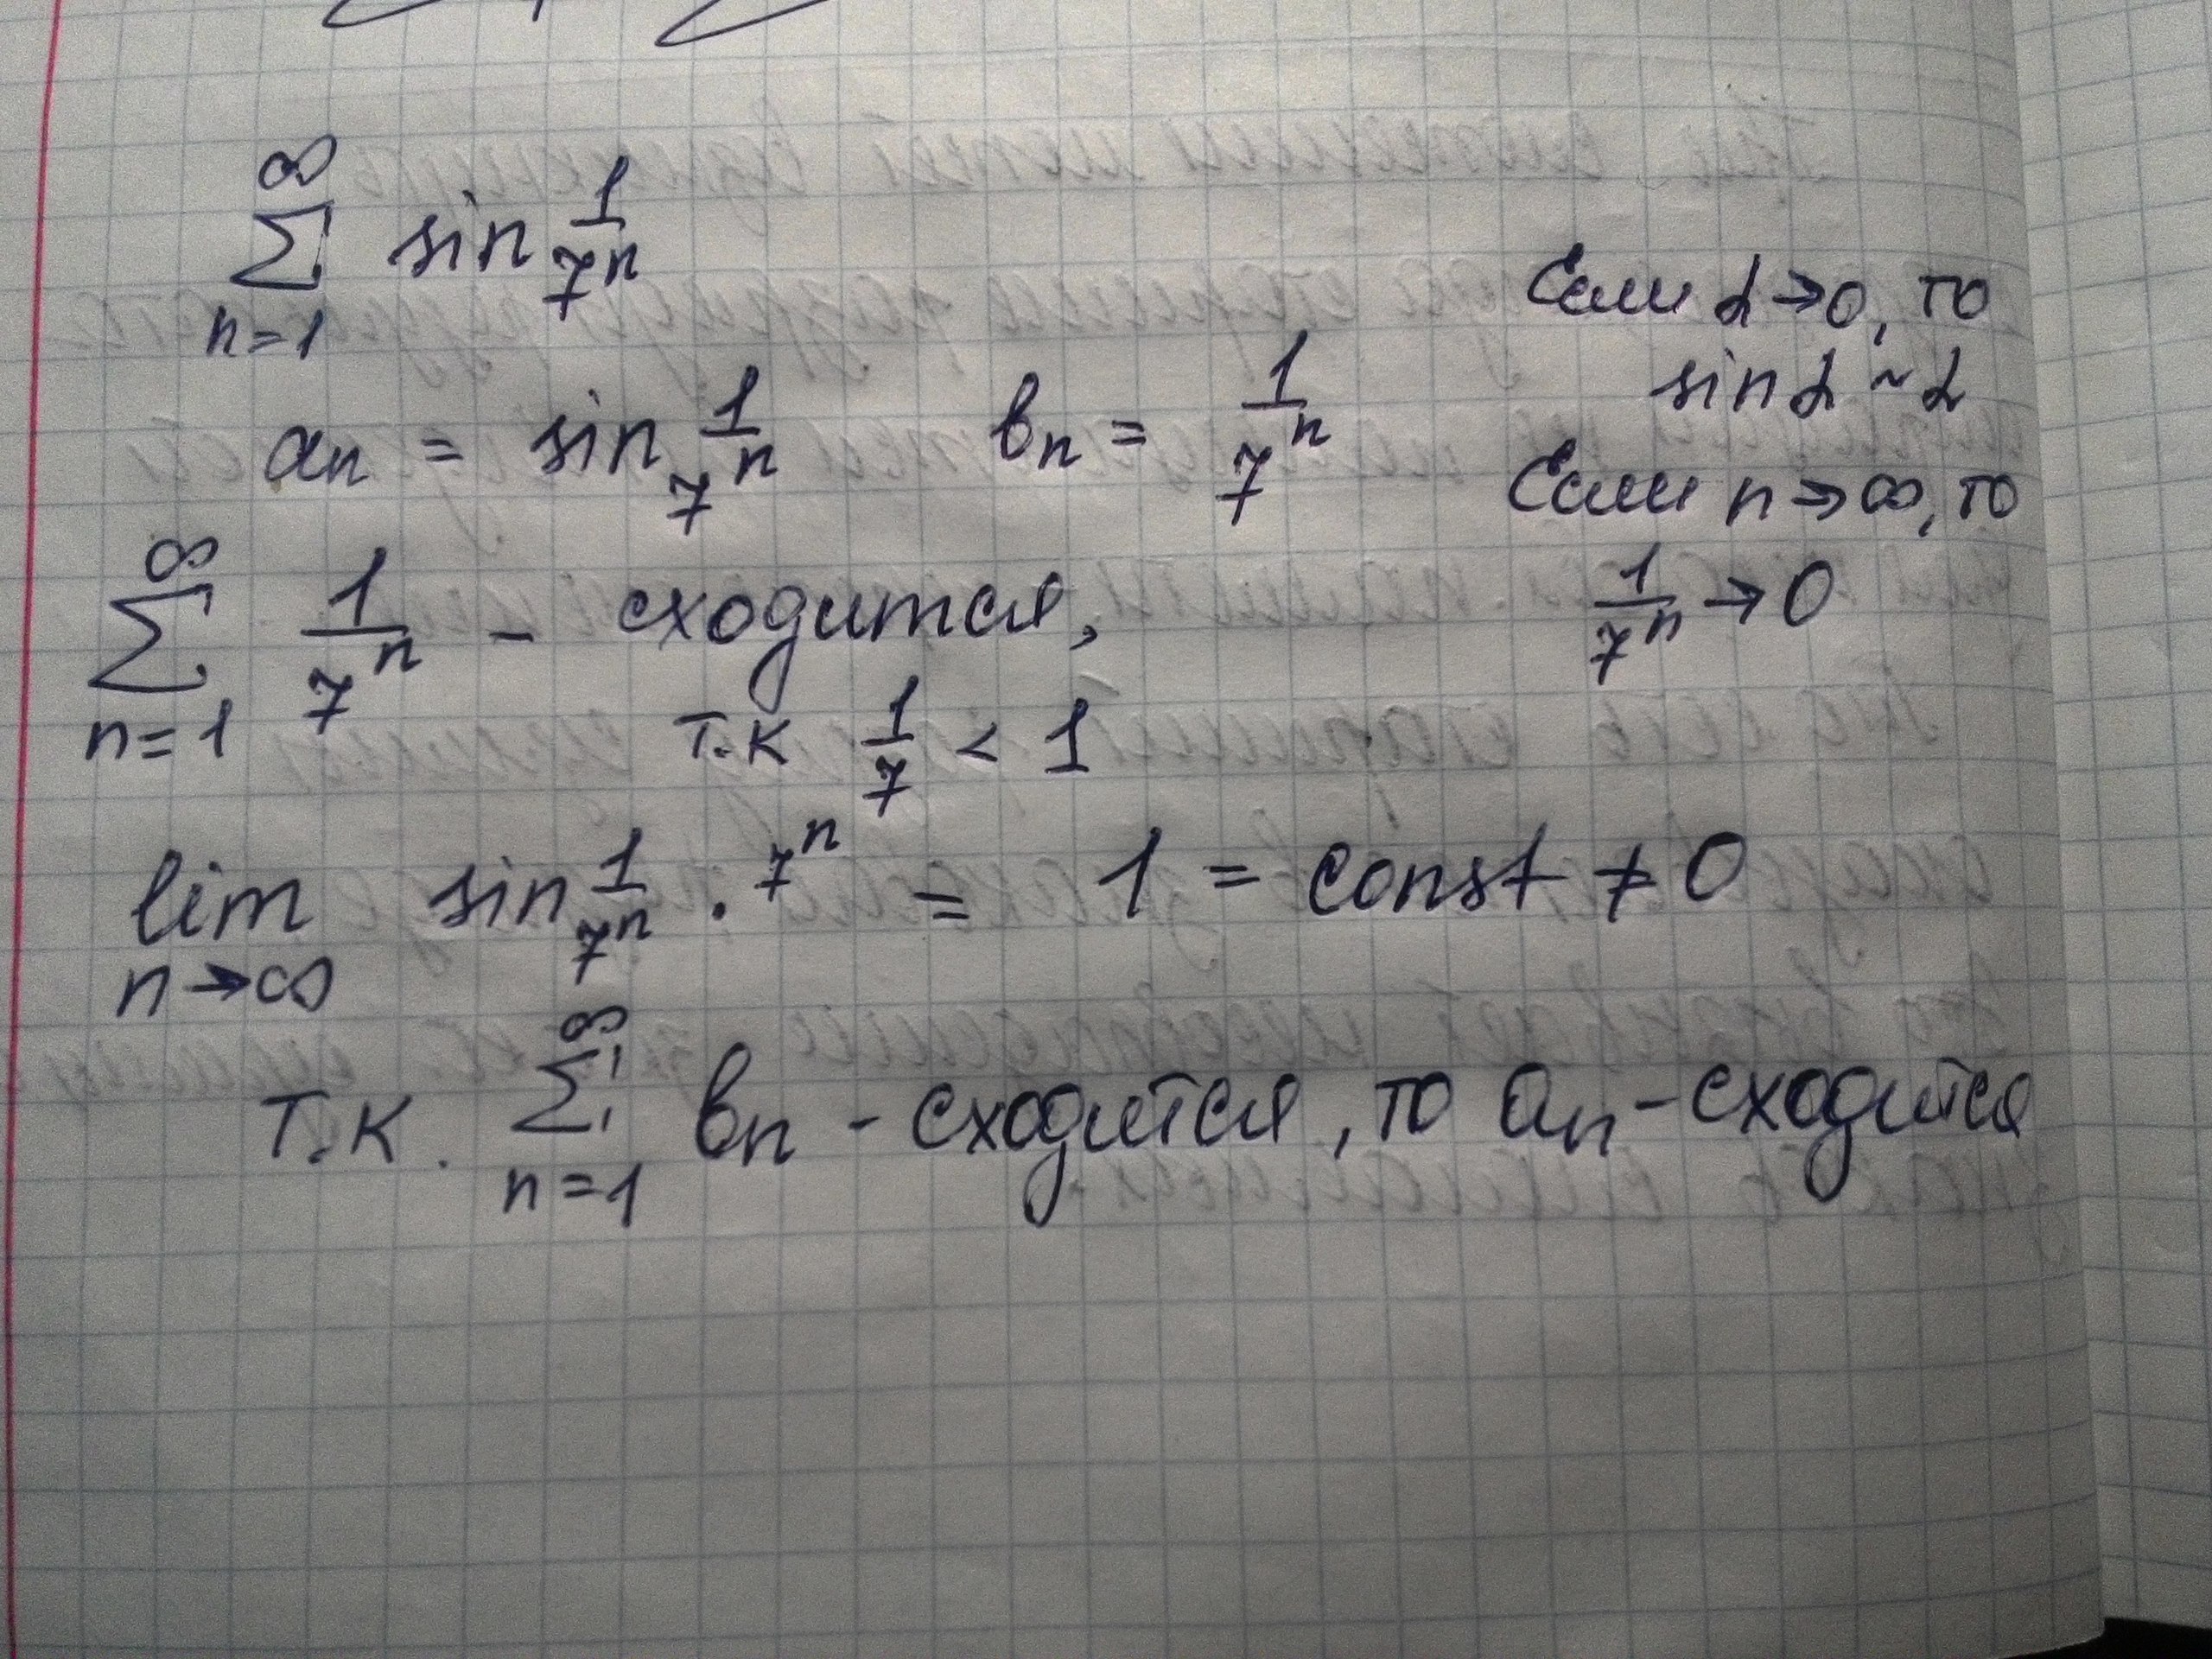 ∞
∑ sin 1/7ⁿ
n=1
Если α→0, то
sin α ~ α
aₙ = sin 1/7ⁿ вₙ = 1/7ⁿ
Если n→∞, то
1/7ⁿ → 0
∞
∑ 1/7ⁿ - сходится,
n=1
т.к 1/7 < 1
lim sin 1/7ⁿ · 7ⁿ = 1 = const ≠ 0
n→∞
∞
т.к. ∑ вₙ - сходится, то aₙ - сходится
n=1